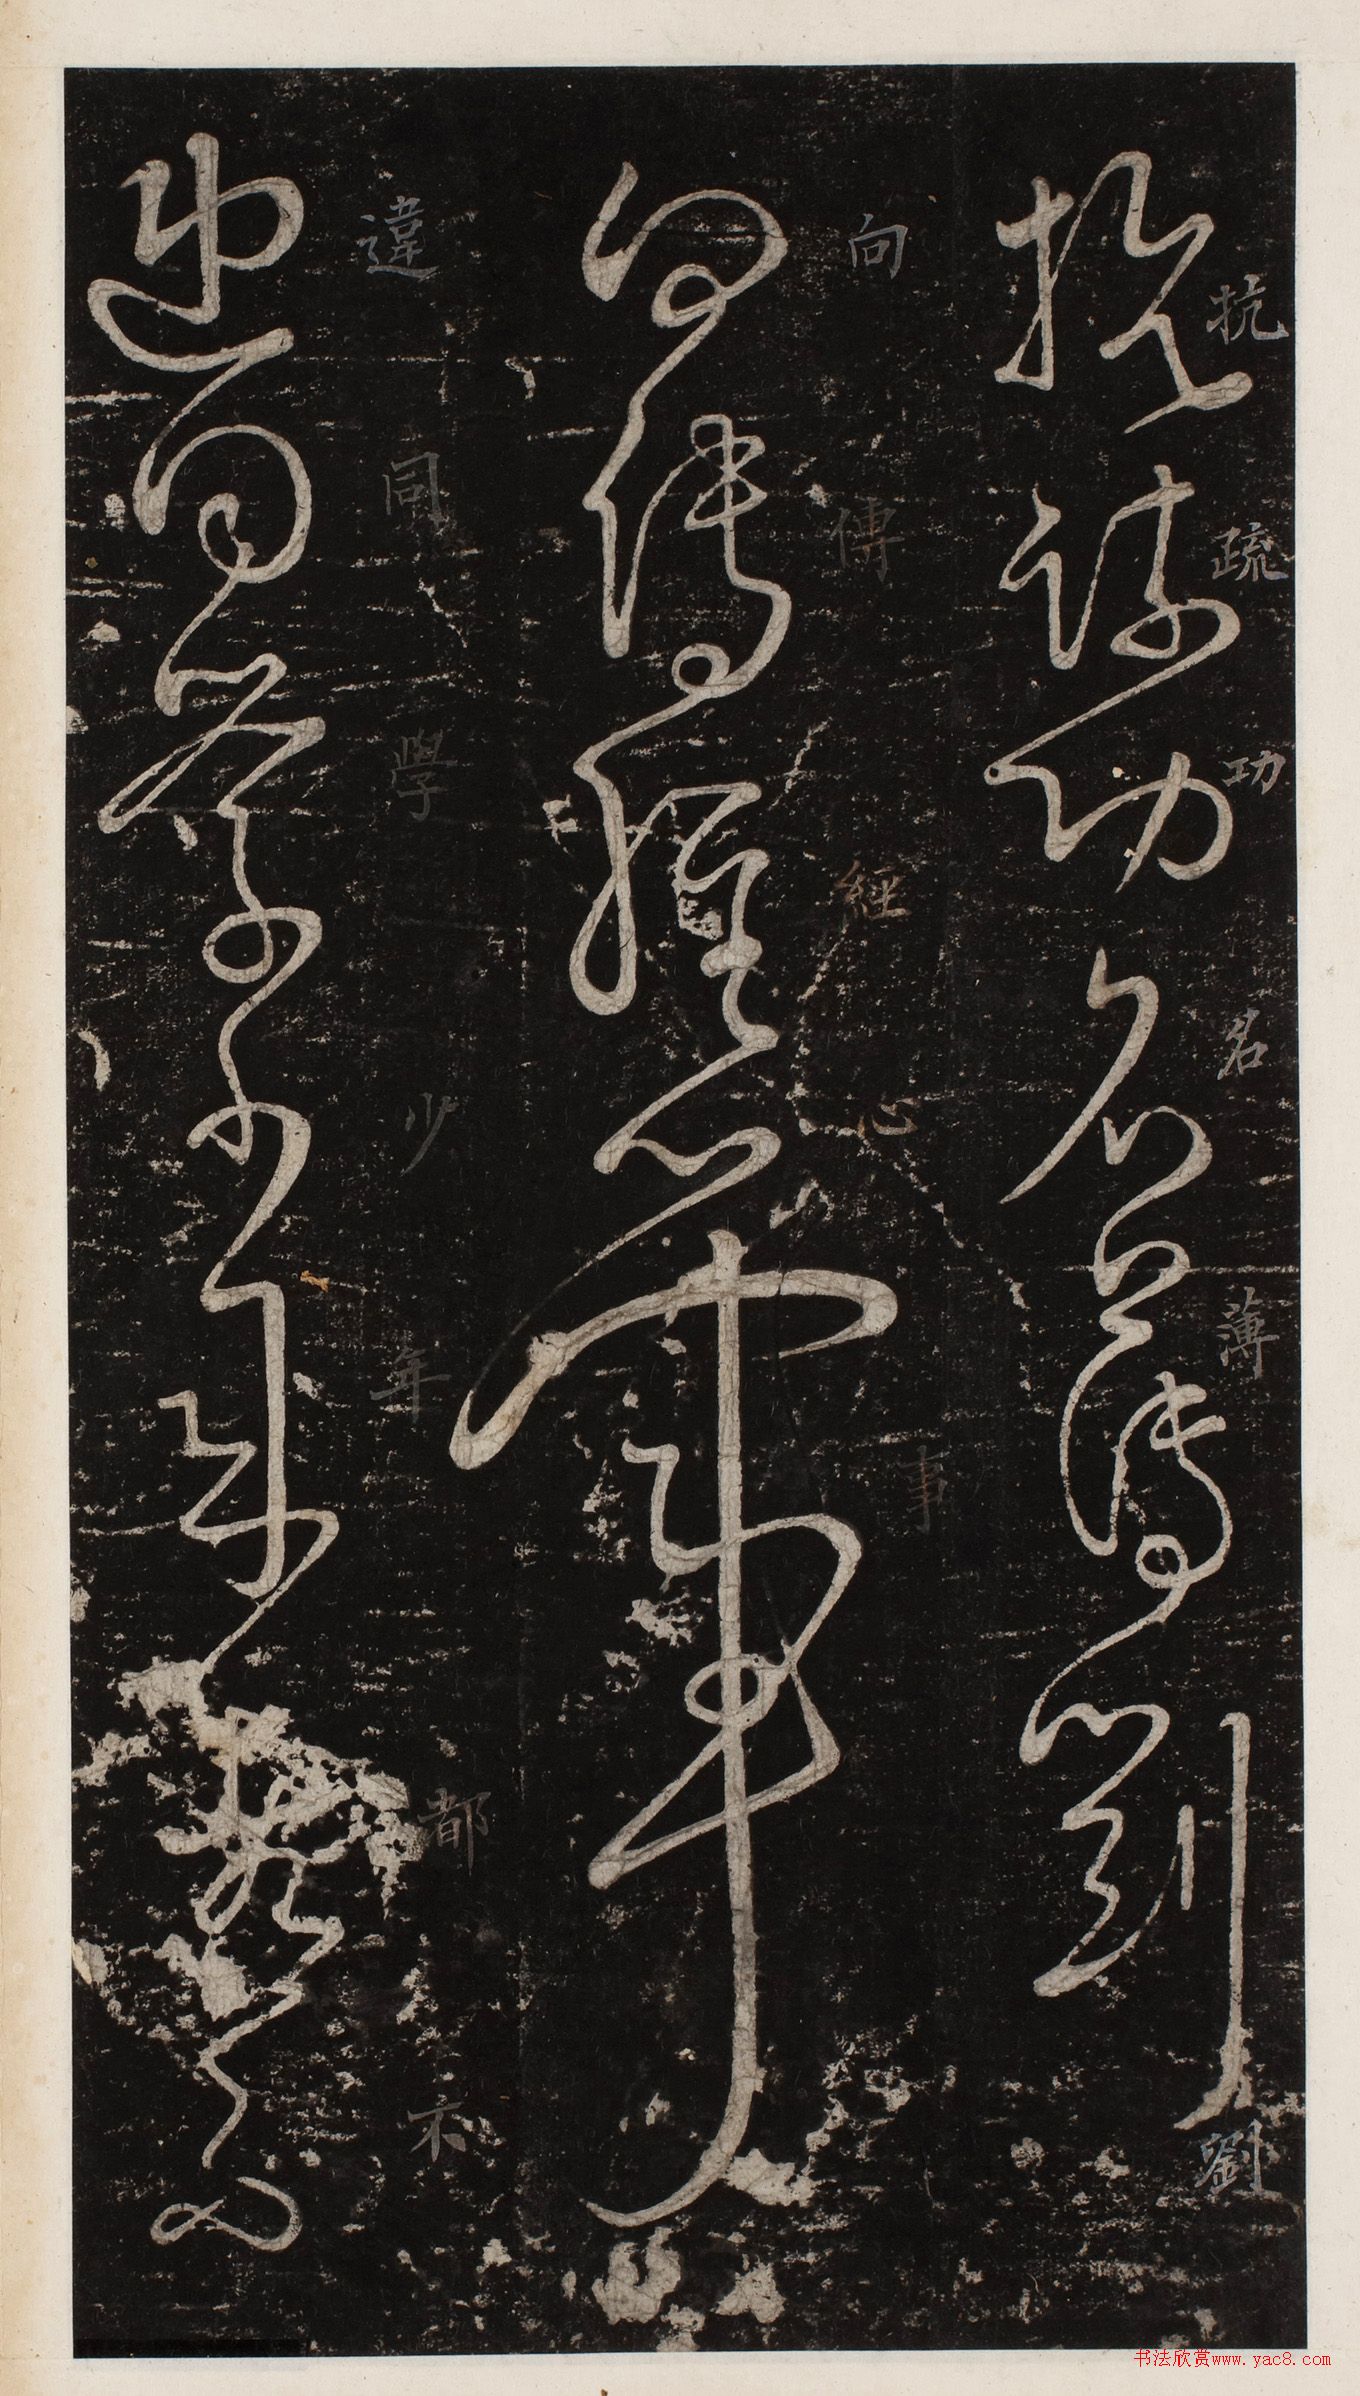 抗疏功名薄劉
向傳經心事
違同學少年都不
书法欣赏www.yac8.com